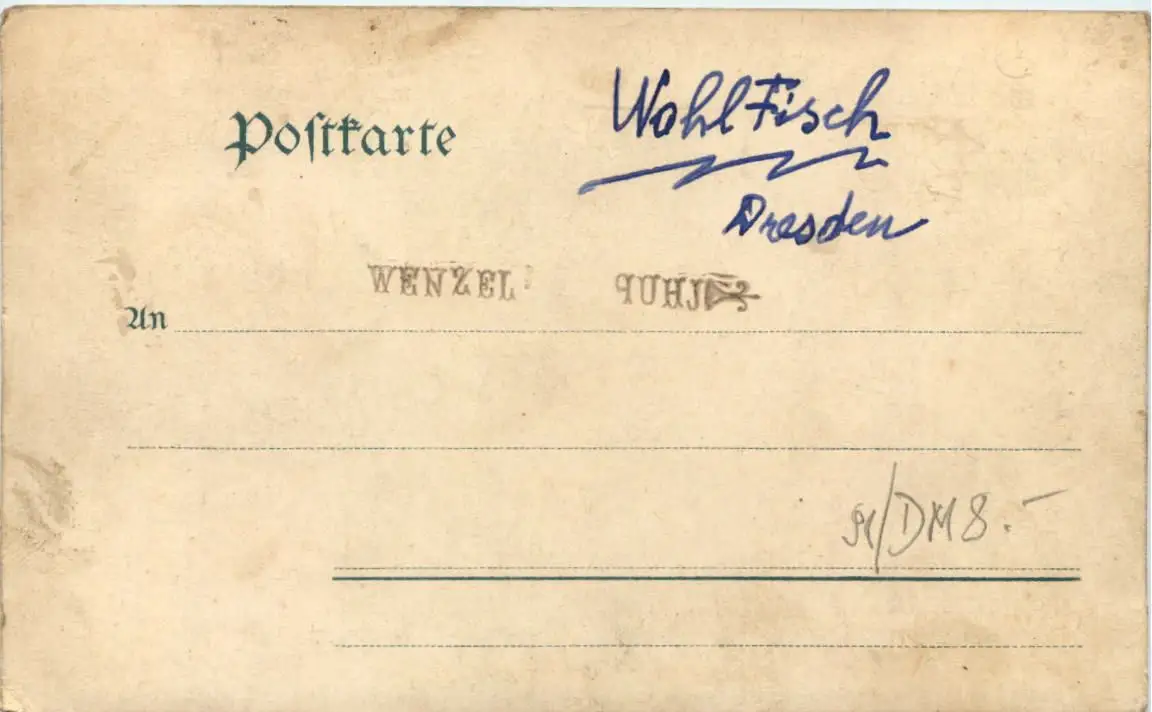 Postkarte
WohlFisch
Dresden
WENZEL
An
/DM 8.-